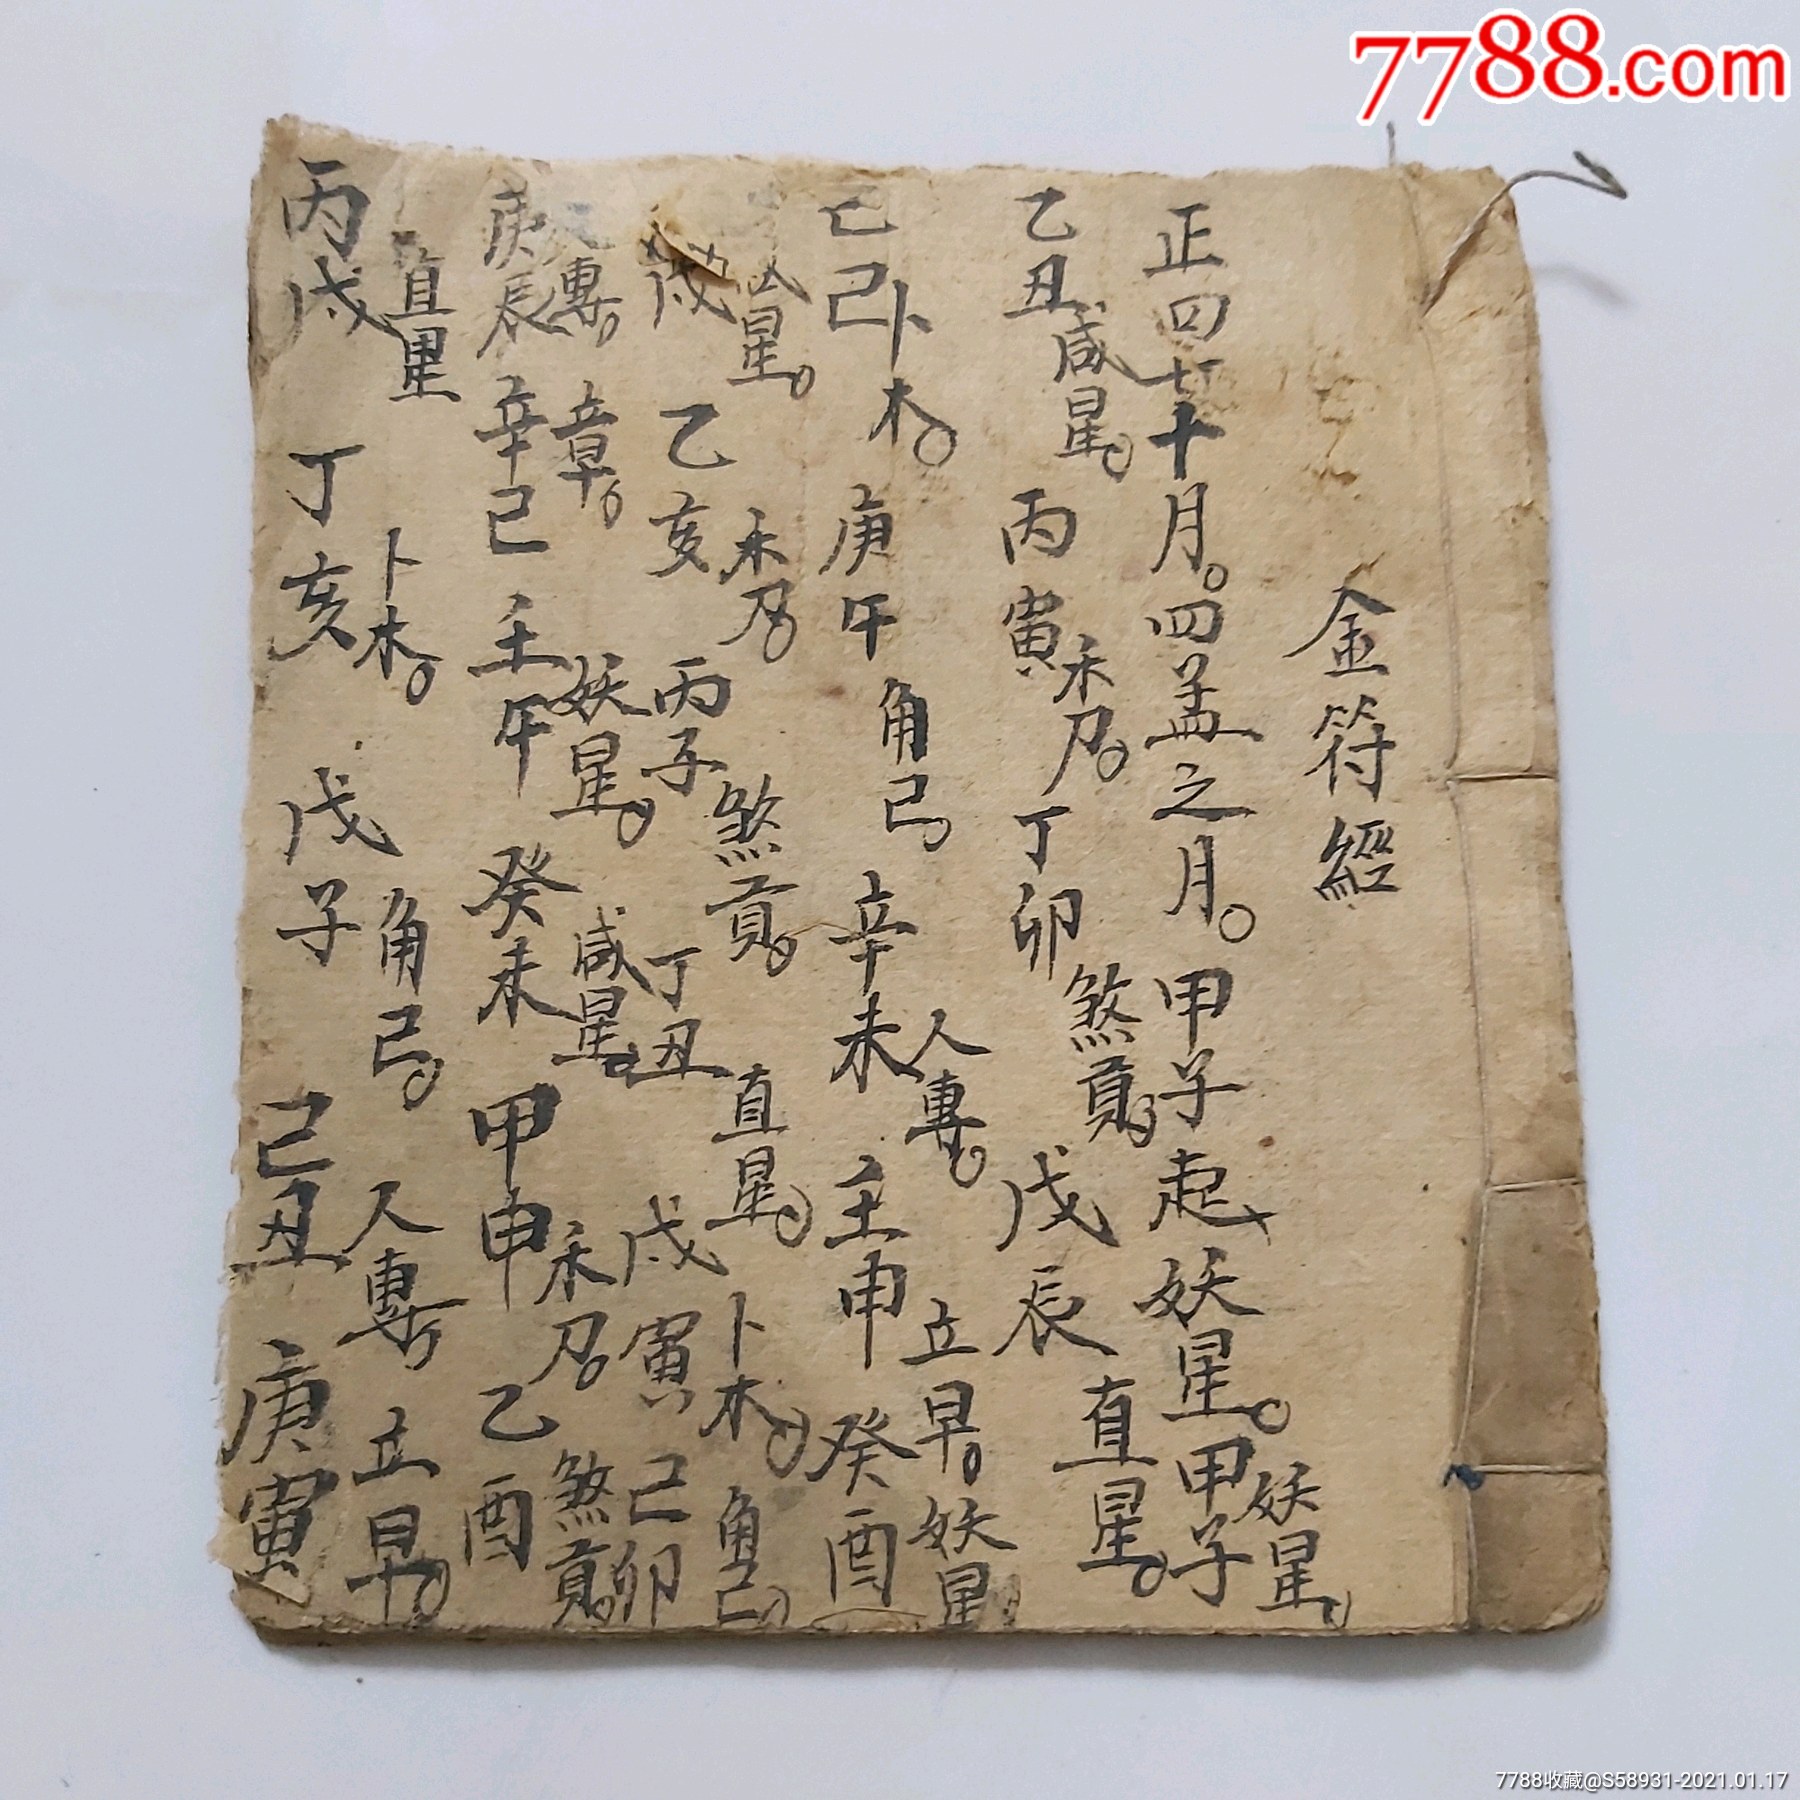 7788.com
金符經
正四七十月。四孟之月。甲子起妖星。甲子妖星。
乙丑咸星。丙寅禾刀。丁卯煞貢。戊辰直星。
己巳卜木。庚午角己。辛未人專。壬申立早。癸酉妖星
戌星。乙亥禾刀。丙子煞貢。丁丑直星。戊寅卜木。己卯角己。
庚辰專。辛巳章。壬午妖星。癸未咸星。甲申禾刀。乙酉煞貢。
丙戌直星丁亥卜木。戊子角己。己丑人專庚寅立早。
7788收藏@S58931-2021.01.17